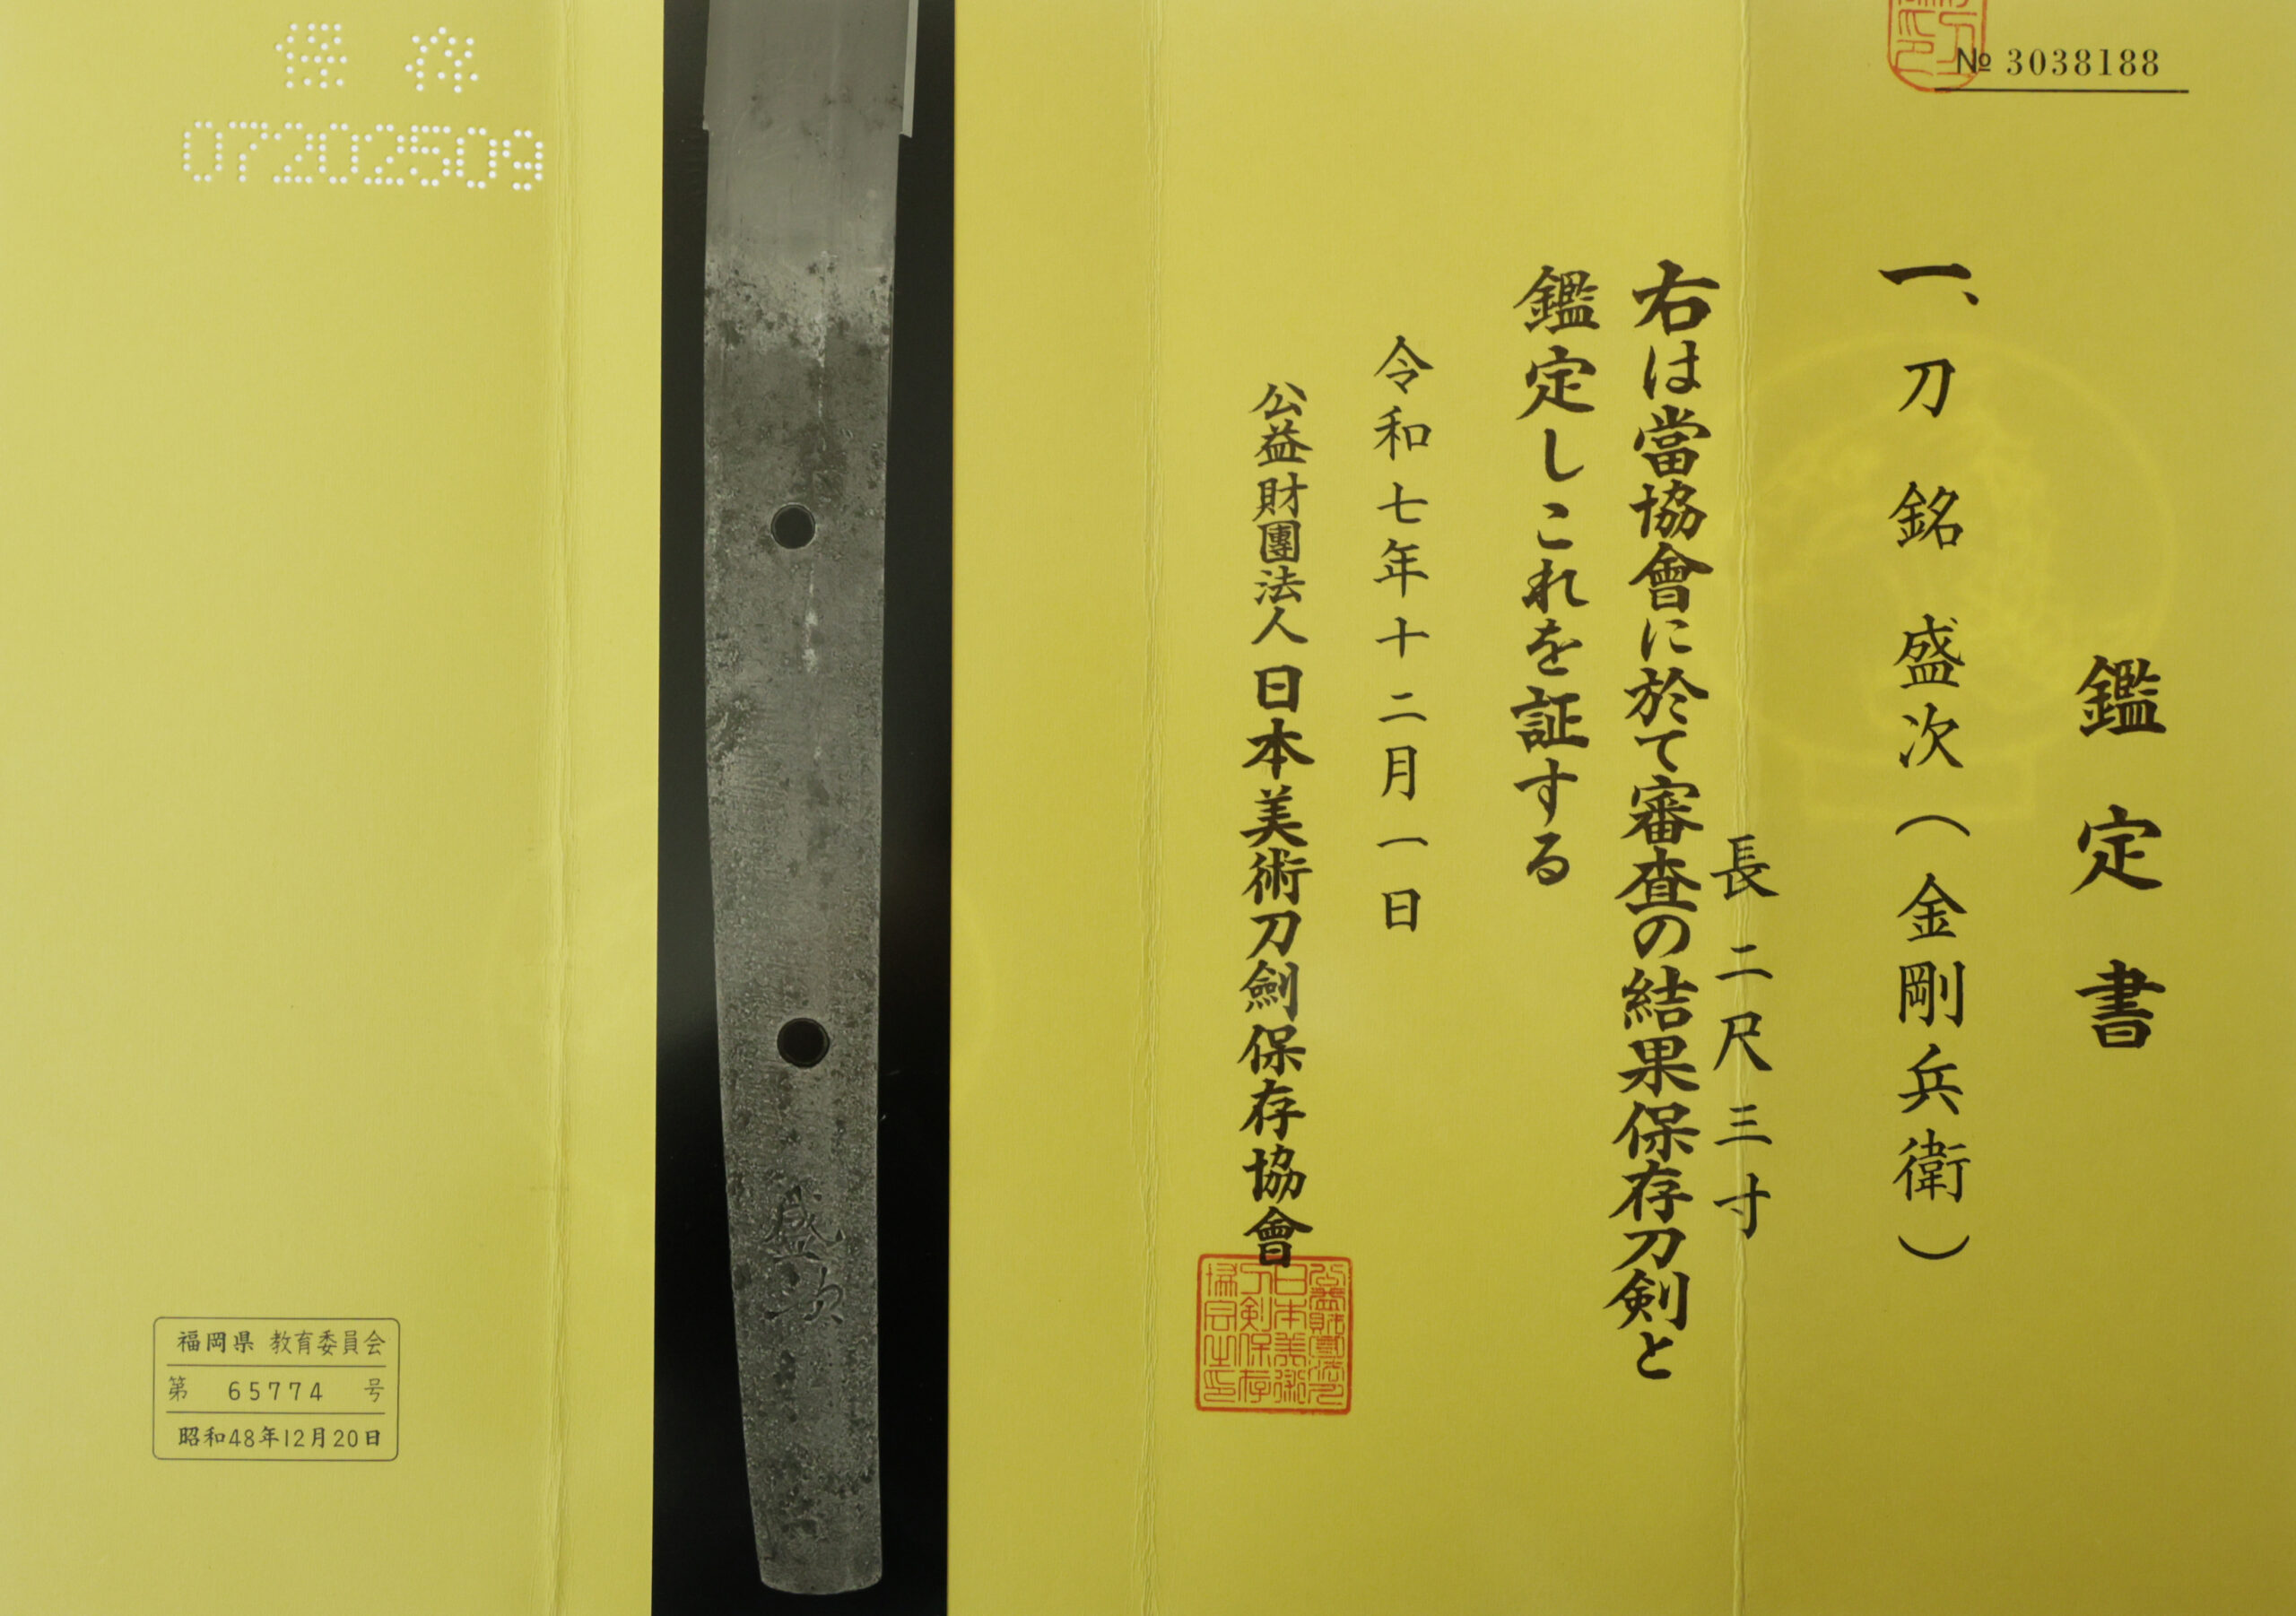 № 3038188
鑑定書
一、刀 銘 盛次（金剛兵衛）
長 二尺三寸
右は當協會に於て審査の結果保存刀剣と
鑑定しこれを証する
令和七年十二月一日
公益財團法人日本美術刀劍保存協會
公益財團法人
日本美術
刀剣保存
協会之印
盛次
保存
07202509
福岡県 教育委員会
第 65774 号
昭和48年12月20日